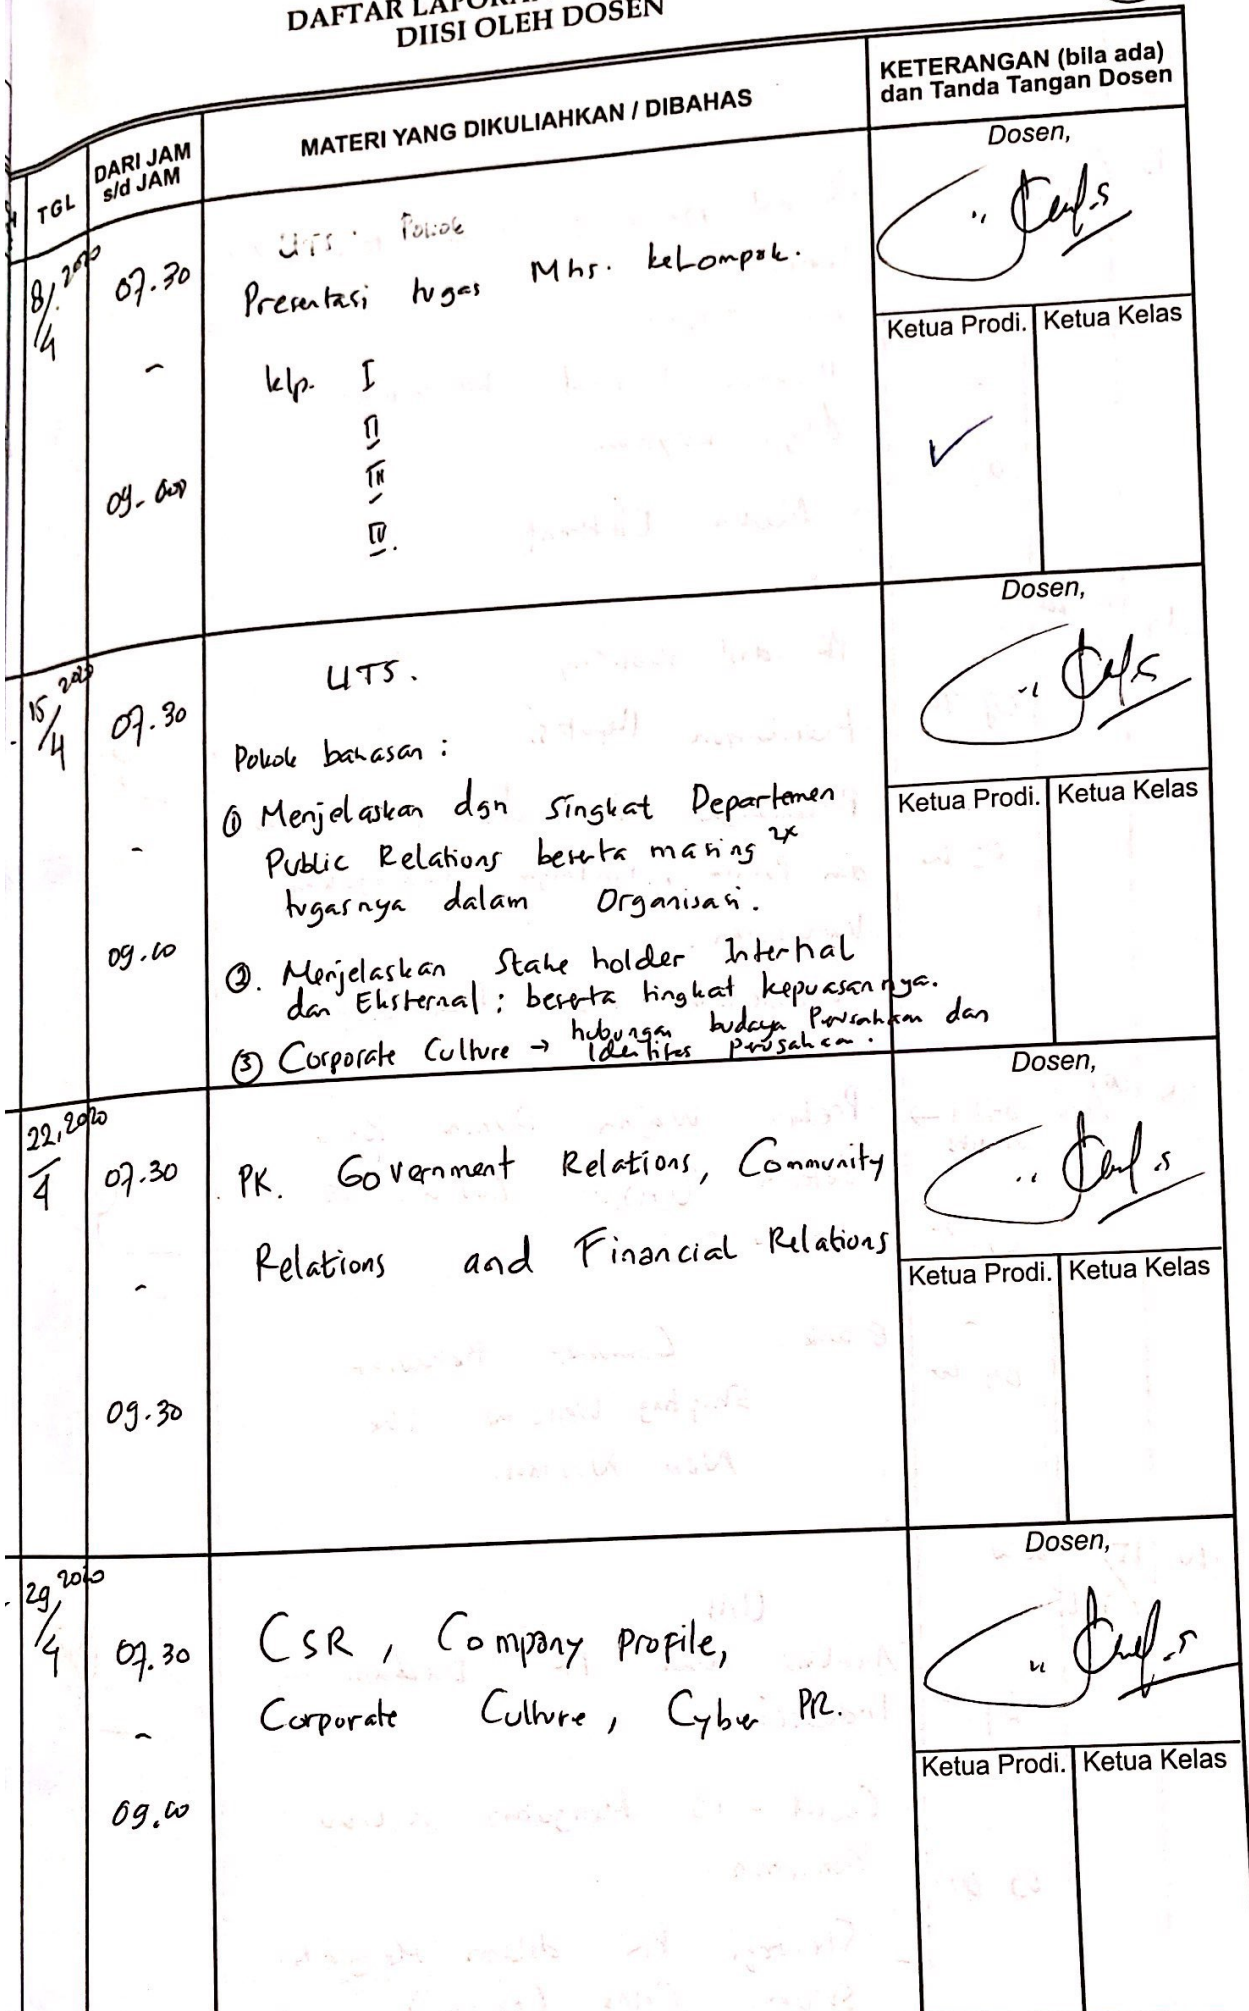 DAFTAR
DIISI OLEH DOSEN
TGL
DARI JAM
s/d JAM
MATERI YANG DIKULIAHKAN / DIBAHAS
KETERANGAN (bila ada)
dan Tanda Tangan Dosen
8/4 2020
07.30
-
09.00
UTS. Pokok
Presentasi tugas Mhs. kelompok.
klp. I
II
III
IV.
Dosen,
Ketua Prodi. Ketua Kelas
15/4 2020
07.30
-
09.00
UTS.
Pokok bahasan :
① Menjelaskan dgn singkat Departemen
Public Relations beserta masing 2x
tugasnya dalam Organisasi.
②. Menjelaskan Stake holder Internal
dan Eksternal ; beserta tingkat kepuasannya.
③ Corporate Culture → hubungan budaya Perusahaan dan
Identitas perusahaan.
Dosen,
Ketua Prodi. Ketua Kelas
22/4, 2020
07.30
-
09.30
PK. Government Relations, Community
Relations and Financial Relations
Dosen,
Ketua Prodi. Ketua Kelas
29/4 2020
07.30
-
09.00
CSR , Company Profile,
Corporate Culture , Cyber PR.
Dosen,
Ketua Prodi. Ketua Kelas